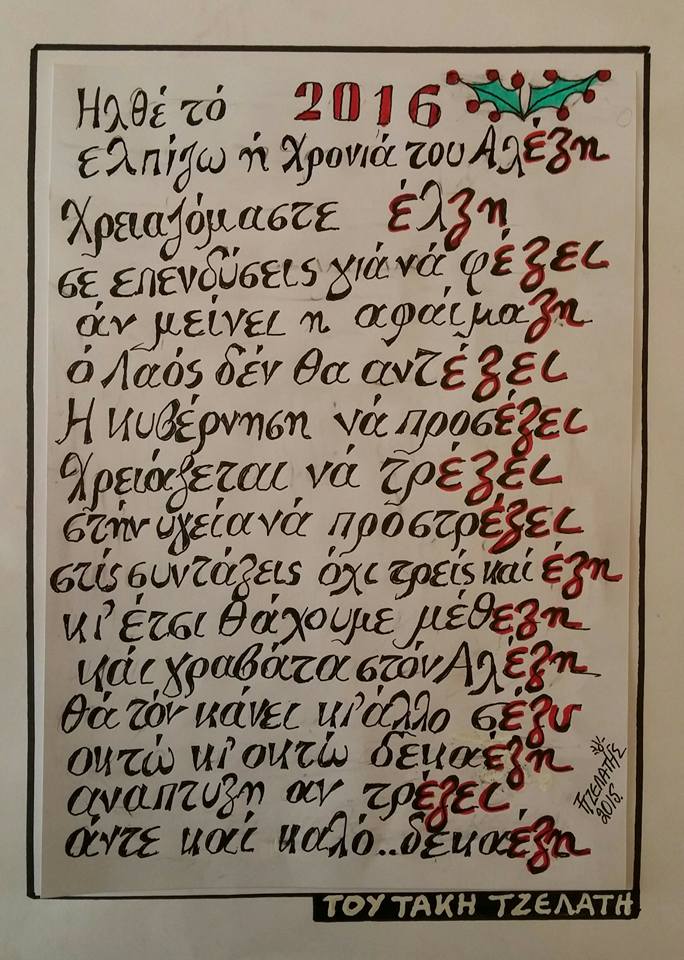 Ηλθέ τό 2016
ελπίζω ή Χρονιά του Αλέξη
Χρειαζόμαστε έλξη
σε επενδύσεις γιά νά φέξει
άν μείνει η αφαίμαξη
ό Λαός δέν θα αντέξει
Η κυβέρνηση νά προσέξει
Χρειάζεται νά τρέξει
στήν υγεία νά προστρέξει
στίς συντάξεις όχι τρείς καί έξη
κι' έτσι θάχουμε μέθεξη
κάι γραβάτα στόν Αλέξη
θά τόν κάνει κι' άλλο σέξυ
οκτώ κι' οκτώ δεκαέξη
αναπτυξη αν τρέξει
άντε καί καλό..δεκαέξη
ΤΖΕΛΑΤΗΣ
2015.
ΤΟΥ ΤΑΚΗ ΤΖΕΛΑΤΗ